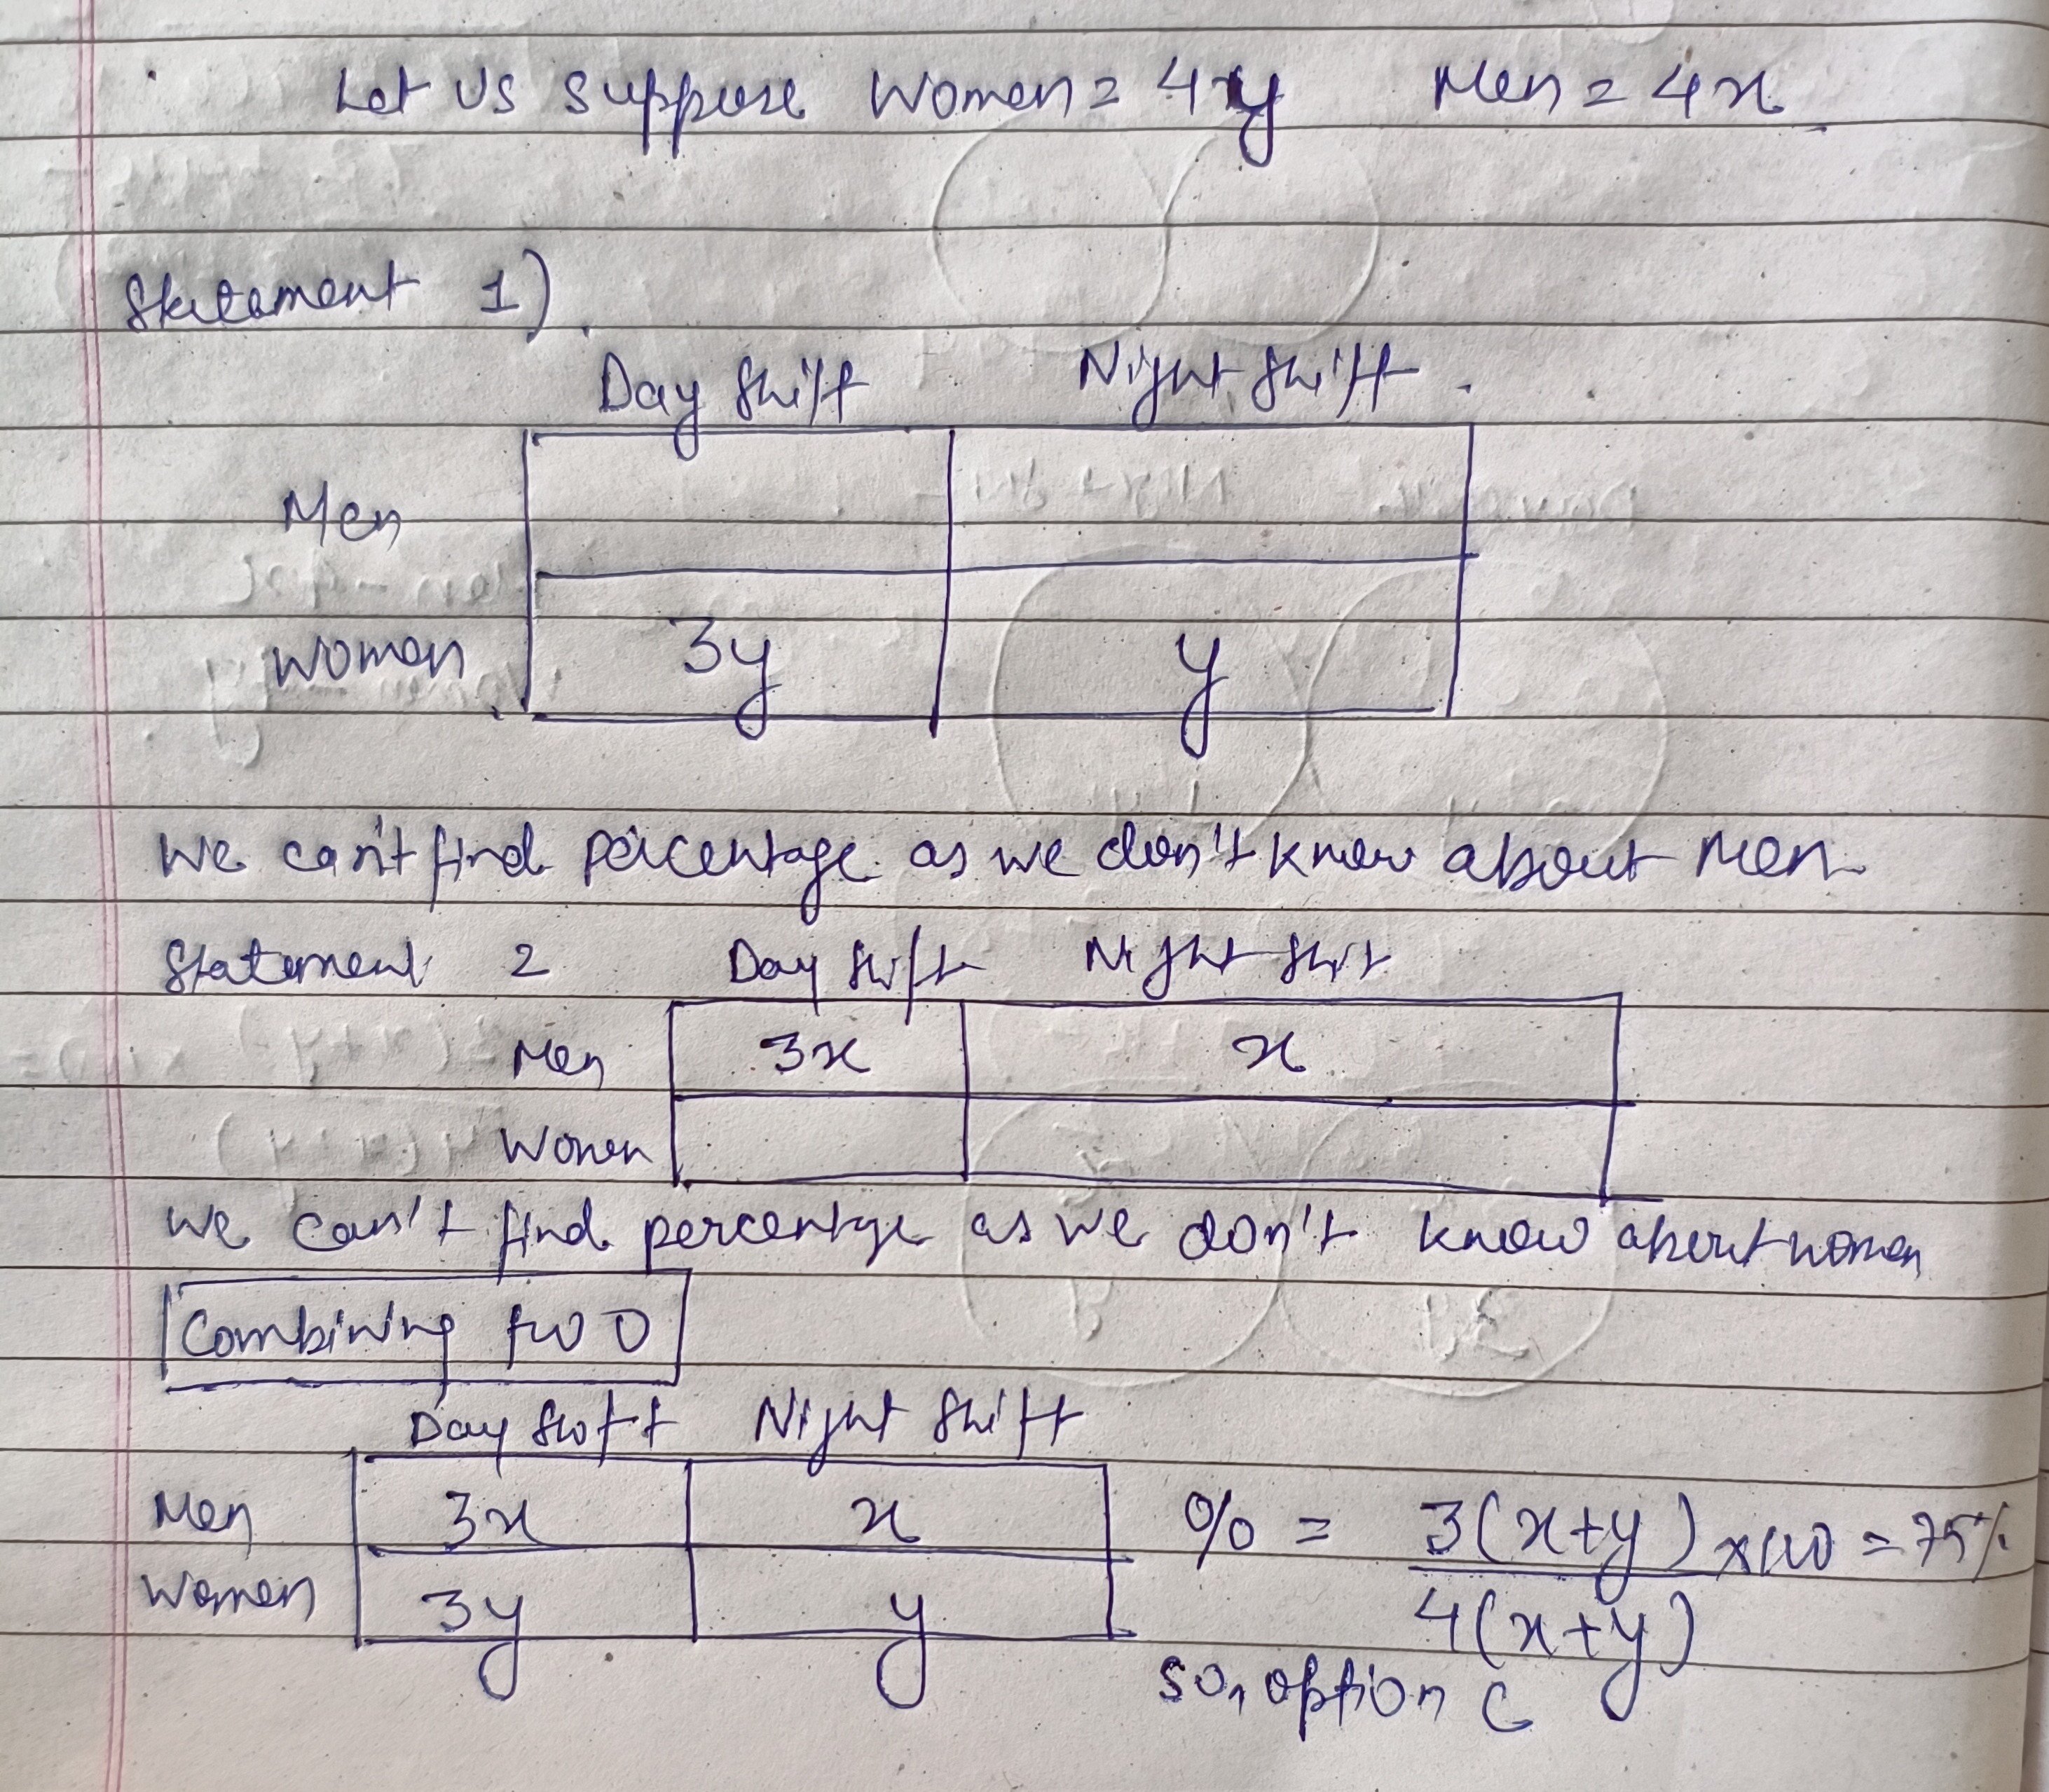 Let Us suppose Women = 4y Men = 4x
Statement 1)
Day Shift Night Shift
Men
Women 3y y
We can't find percentage as we don't know about Men
Statement 2 Day Shift Night Shit
Men 3x x
Women
We can't find percentage as we don't know about women
Combining two
Day Shift Night Shift
Men 3x x % = 3(x+y) x100 = 75%
Women 3y y 4(x+y)
so, option C